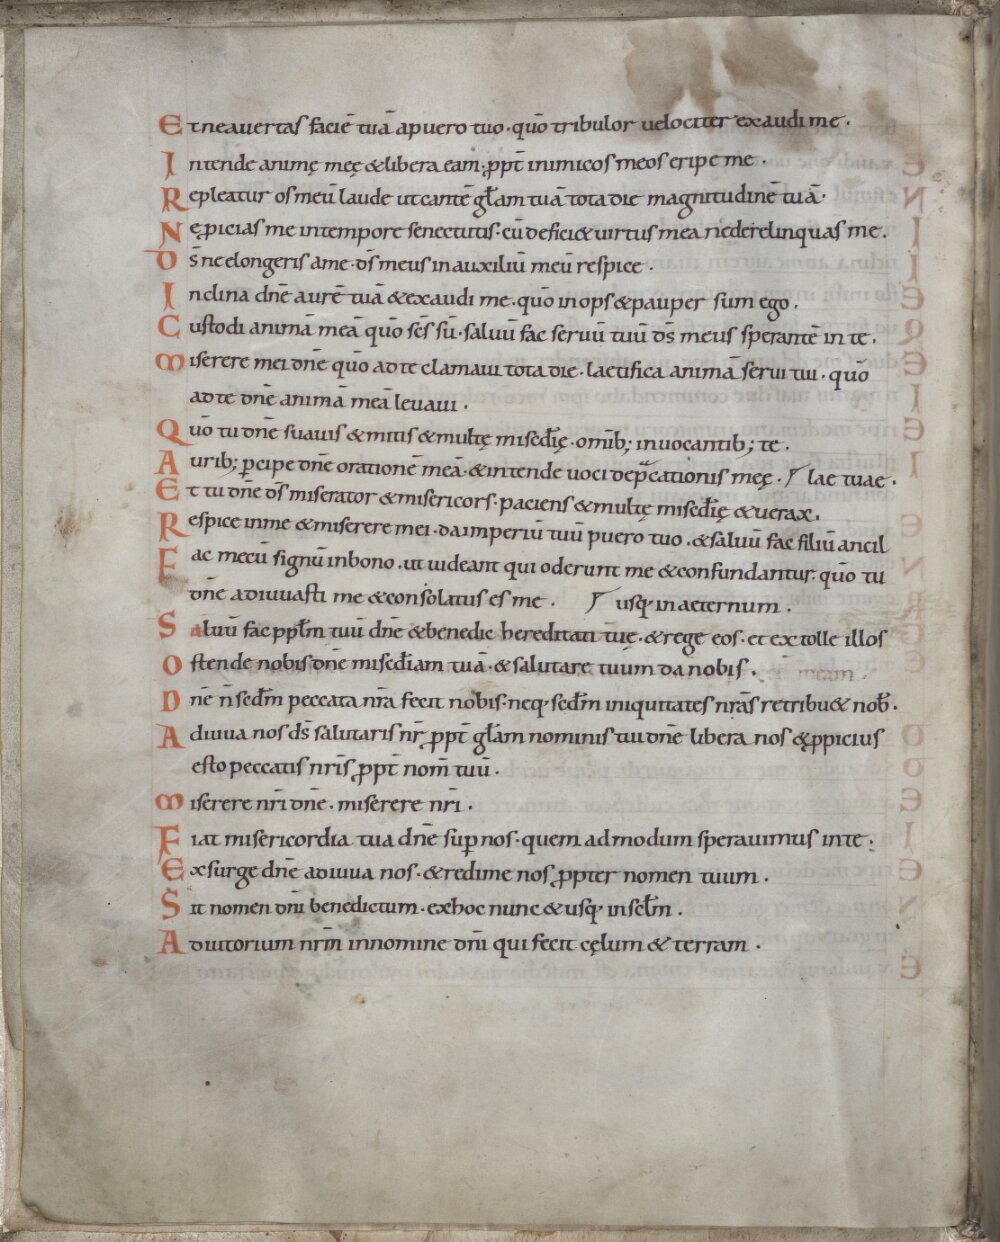 Et ne avertas faciē tuā a puero tuo · quō tribulor velociter exaudi me ·
Intende animę meę & libera eam · ꝓpt̄ inimicos meos eripe me ·
Repleatur os meū laude ut cantē gl̄am tuā tota die magnitudinē tuā ·
Ne ꝓicias me in tempore senectutis · cū defici& uirtus mea ne derelinquas me ·
Ds̄ ne elongeris a me · ds̄ meus in auxiliū meū respice ·
Inclina dn̄e aurē tuā & exaudi me · quō inops & pauper sum ego ·
Custodi animā meā quō sc̄s sū · saluū fac seruū tuū ds̄ meus sperantē in te ·
Miserere mei dn̄e quō ad te clamaui tota die · laetifica animā serui tui · quō
ad te dn̄e animā meā leuaui ·
Quō tu dn̄e suauis & mitis & multę misedīę · omīb; inuocantib; te ·
Aurib; ꝑcipe dn̄e orationē meā · & intende uoci dep̄cationis meę · / lae tuae ·
Et tu dn̄e ds̄ miserator & misericors · paciens & multę misedīę & uerax ·
Respice in me & miserere mei · da imperiū tuū puero tuo · & saluū fac filiū ancil
Fac mecū signū in bono · ut uideant qui oderunt me & confundantur · quō tu
dn̄e adiuuasti me & consolatus es me · / usq; in aeternum ·
Saluū fac ppl̄m tuū dn̄e & benedic hereditati tuę · & rege eos · et extolle illos
Ostende nobis dn̄e misedīam tuā · & salutare tuum da nobis ·
Dn̄e n̄ sedm̄ peccata nr̄a fecit nobis · neq; sedm̄ iniquitates nr̄as retribu& nob̄ ·
Adiuua nos ds̄ salutaris nr̄ ꝓpt̄ gl̄am nominis tui dn̄e libera nos & ꝓpicius
esto peccatis nr̄is ꝓpt̄ nom̄ tuū ·
Miserere nr̄i dn̄e · miserere nr̄i ·
Fiat misericordia tua dn̄e suꝑ nos · quem ad modum sperauimus in te ·
Exsurge dn̄e adiuua nos · & redime nos ꝓpter nomen tuum ·
Sit nomen dn̄i benedictum · ex hoc nunc & usq; in sclm̄ ·
Adiutorium nr̄m in nomine dn̄i qui fecit cęlum & terram ·